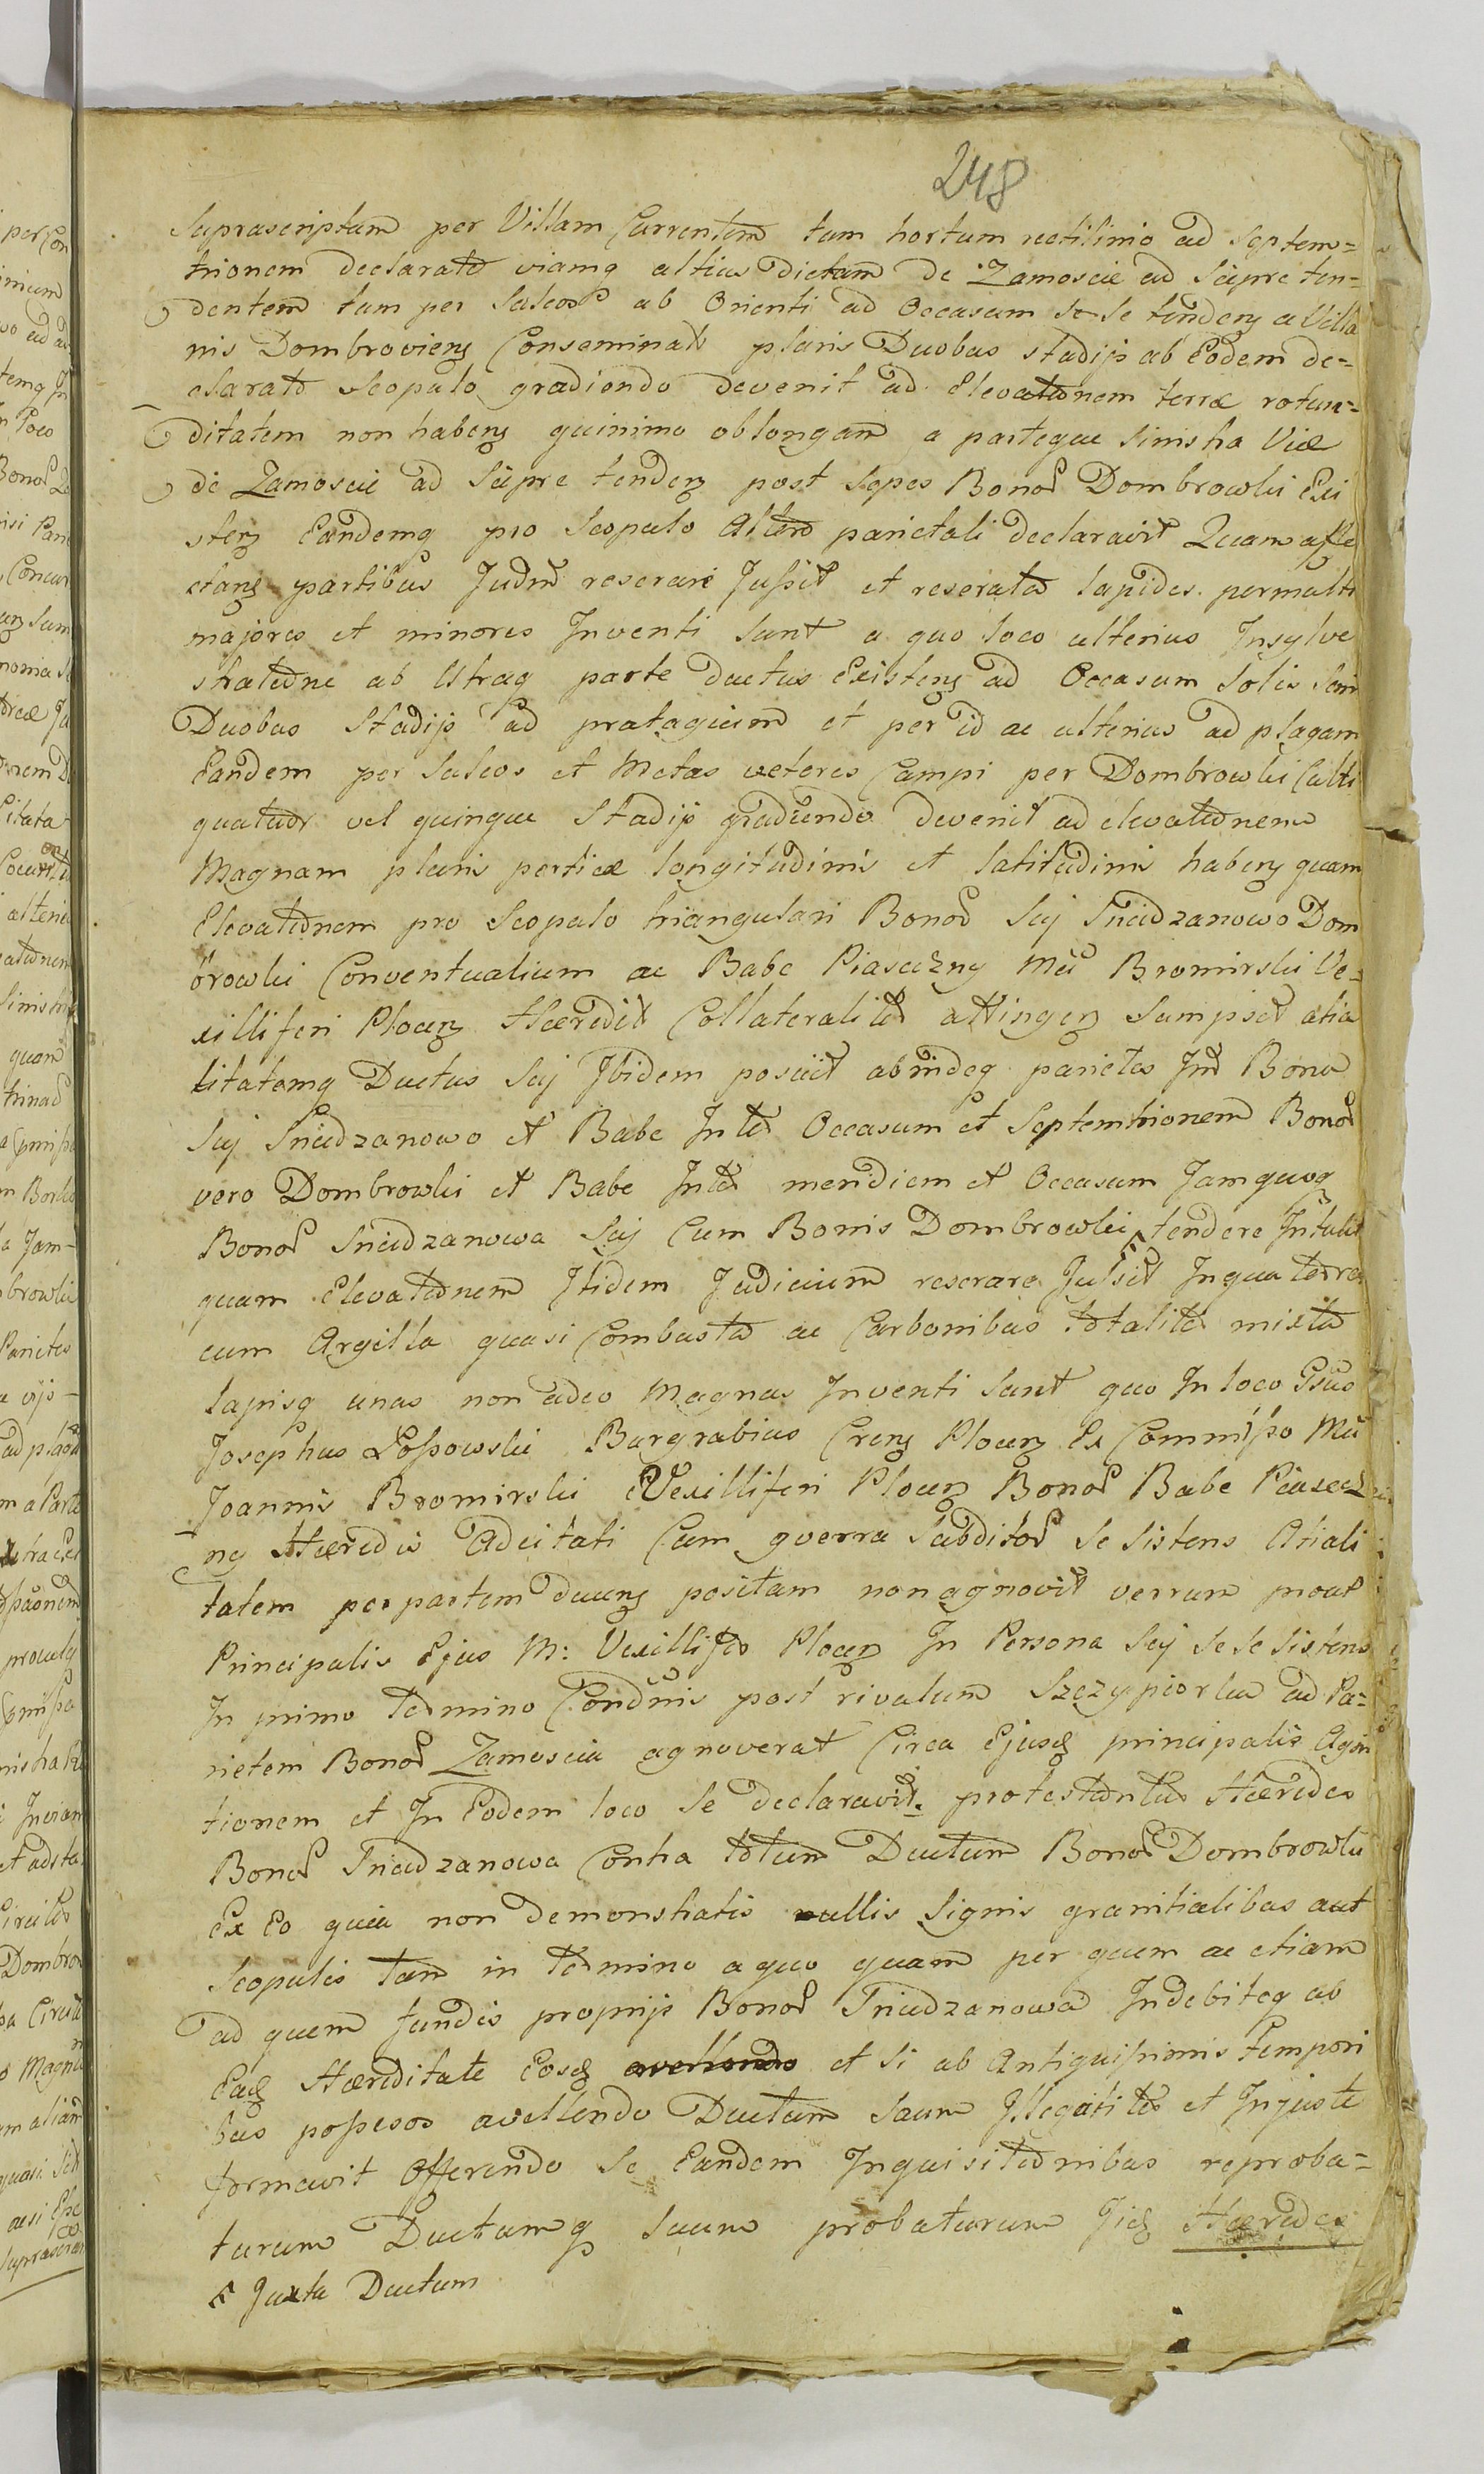 248
Suprascriptam per Villam Currentem tum hortum rectilinio ad Septem=
trionem declarato viamq altius dictam de Zamoscie ad Sciepre ten=
dentem tum per Sulcos ab Orienti ad Occasum se se tendenz a Villa
nis Dombrovienz Conseminat pluris Duobus stadijs ab Eodem de=
clarato Scopulo gradiendo devenit ad Elevationem terræ rotun=
ditatem non habenz quinimo oblongam a parteque sinistra Viæ
de Zamoscie ad Sciepre tendenz post Sepes Bonor Dombrowki Exi
stenz Eandemq pro Scopulo Altero parietali declaravit Quam affe
ctanz partibus Judm reserari Jussit et reserata lapides permulti
majores et minores Inventi sunt a quo loco ulterius Insylve
stratione ab Utraq parte ductus Existenz ad Occasum Solis
Duobus Stadijs ad pratagium et per id ac ulterius ad plagam
Eandem per Sulcos et Metas veteres Campi per Dombrowki Culti
quatuor vel quinque Stadijs gradiendo devenit ad elevationem
Magnam pluris perticæ longitudinis et latitudinis habenz quam
Elevationem pro Scopulo triangulari Bonor Scij Sniedzanowo Dom
browki Conventualium ac Babe Piaseczny Mci Bromirski Ve=
xilliferi Plocenz Hæredit Collateralit attingenz Sumpsit
litatemq Ductus Scij Ibidem posuit abindeq parietes Int Bona
Scij Sniedzanowo et Babe Inter Occasum et Septemtrionem Bonor
vero Dombrowki et Babe Inter meridiem et Occasum Jamquoq
Bonor Sniedzanowa Scij Cum Bonis Dombrowki tendere Intulit
quam Elevationem Itidem Judicium reserare Jussit Inqua terra
cum Argilla quasi Combusta ac Carbonibus totaliter mixta
lapisq unus non adeo Magnus Inventi sunt quo In loco Gsus
Josephus Lossowski Burgrabius Crenz Plocenz Ex Commisso Mci
Joannis Bromirski Vexilliferi Plocenz Bonor Babe Piasecz
ny Hæredis Adcitati Cum gverra Subditor Se Sistens Atiali
tatem per partem ducenz positam non agnovit verum prout
Principalis Ejus M: Vexillifer Plocenz In Persona Scij se se sistens
In primo termino Condnis post rivulum Szczypiorka ad Pa=
rietem Bonor Zamoscia agnoverat Circa Ejusq principalis Agni
tionem et In Eodem loco Se declaravit. protestantur Hæredes
Bonor Sniedzanowa Contra totum Ductum Bonor Dombrowki
Ex Eo quia non demonstratis nullis Signis granitialibus aut
Scopulis tam in termino aquo quam per quem ac etiam
ad quem fundis proprijs Bonor Sniedzanowa Indebiteq ab
Eaq Hæreditate Eosq avellendo et si ab Antiquissimis tempori
bus possesos avellendo Ductum Suum Illegaliter et Injuste
formavit Offerendo Se Eandem Inquisitionibus reproba=
turum Ductumq Suum probaturum Jidq Hæredes
Juxta Ductum